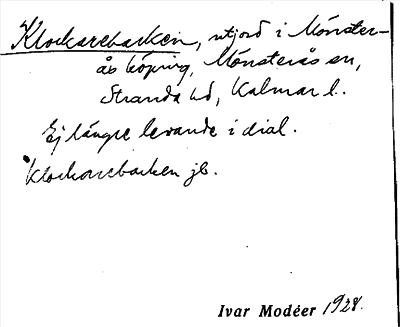 Klockarebacken, utjord i Mönster-
ås köping, Mönsterås sn,
Stranda hd, Kalmar l.
Ej längre levande i dial.
Klockarebacken jb.
Ivar Modéer 1928.